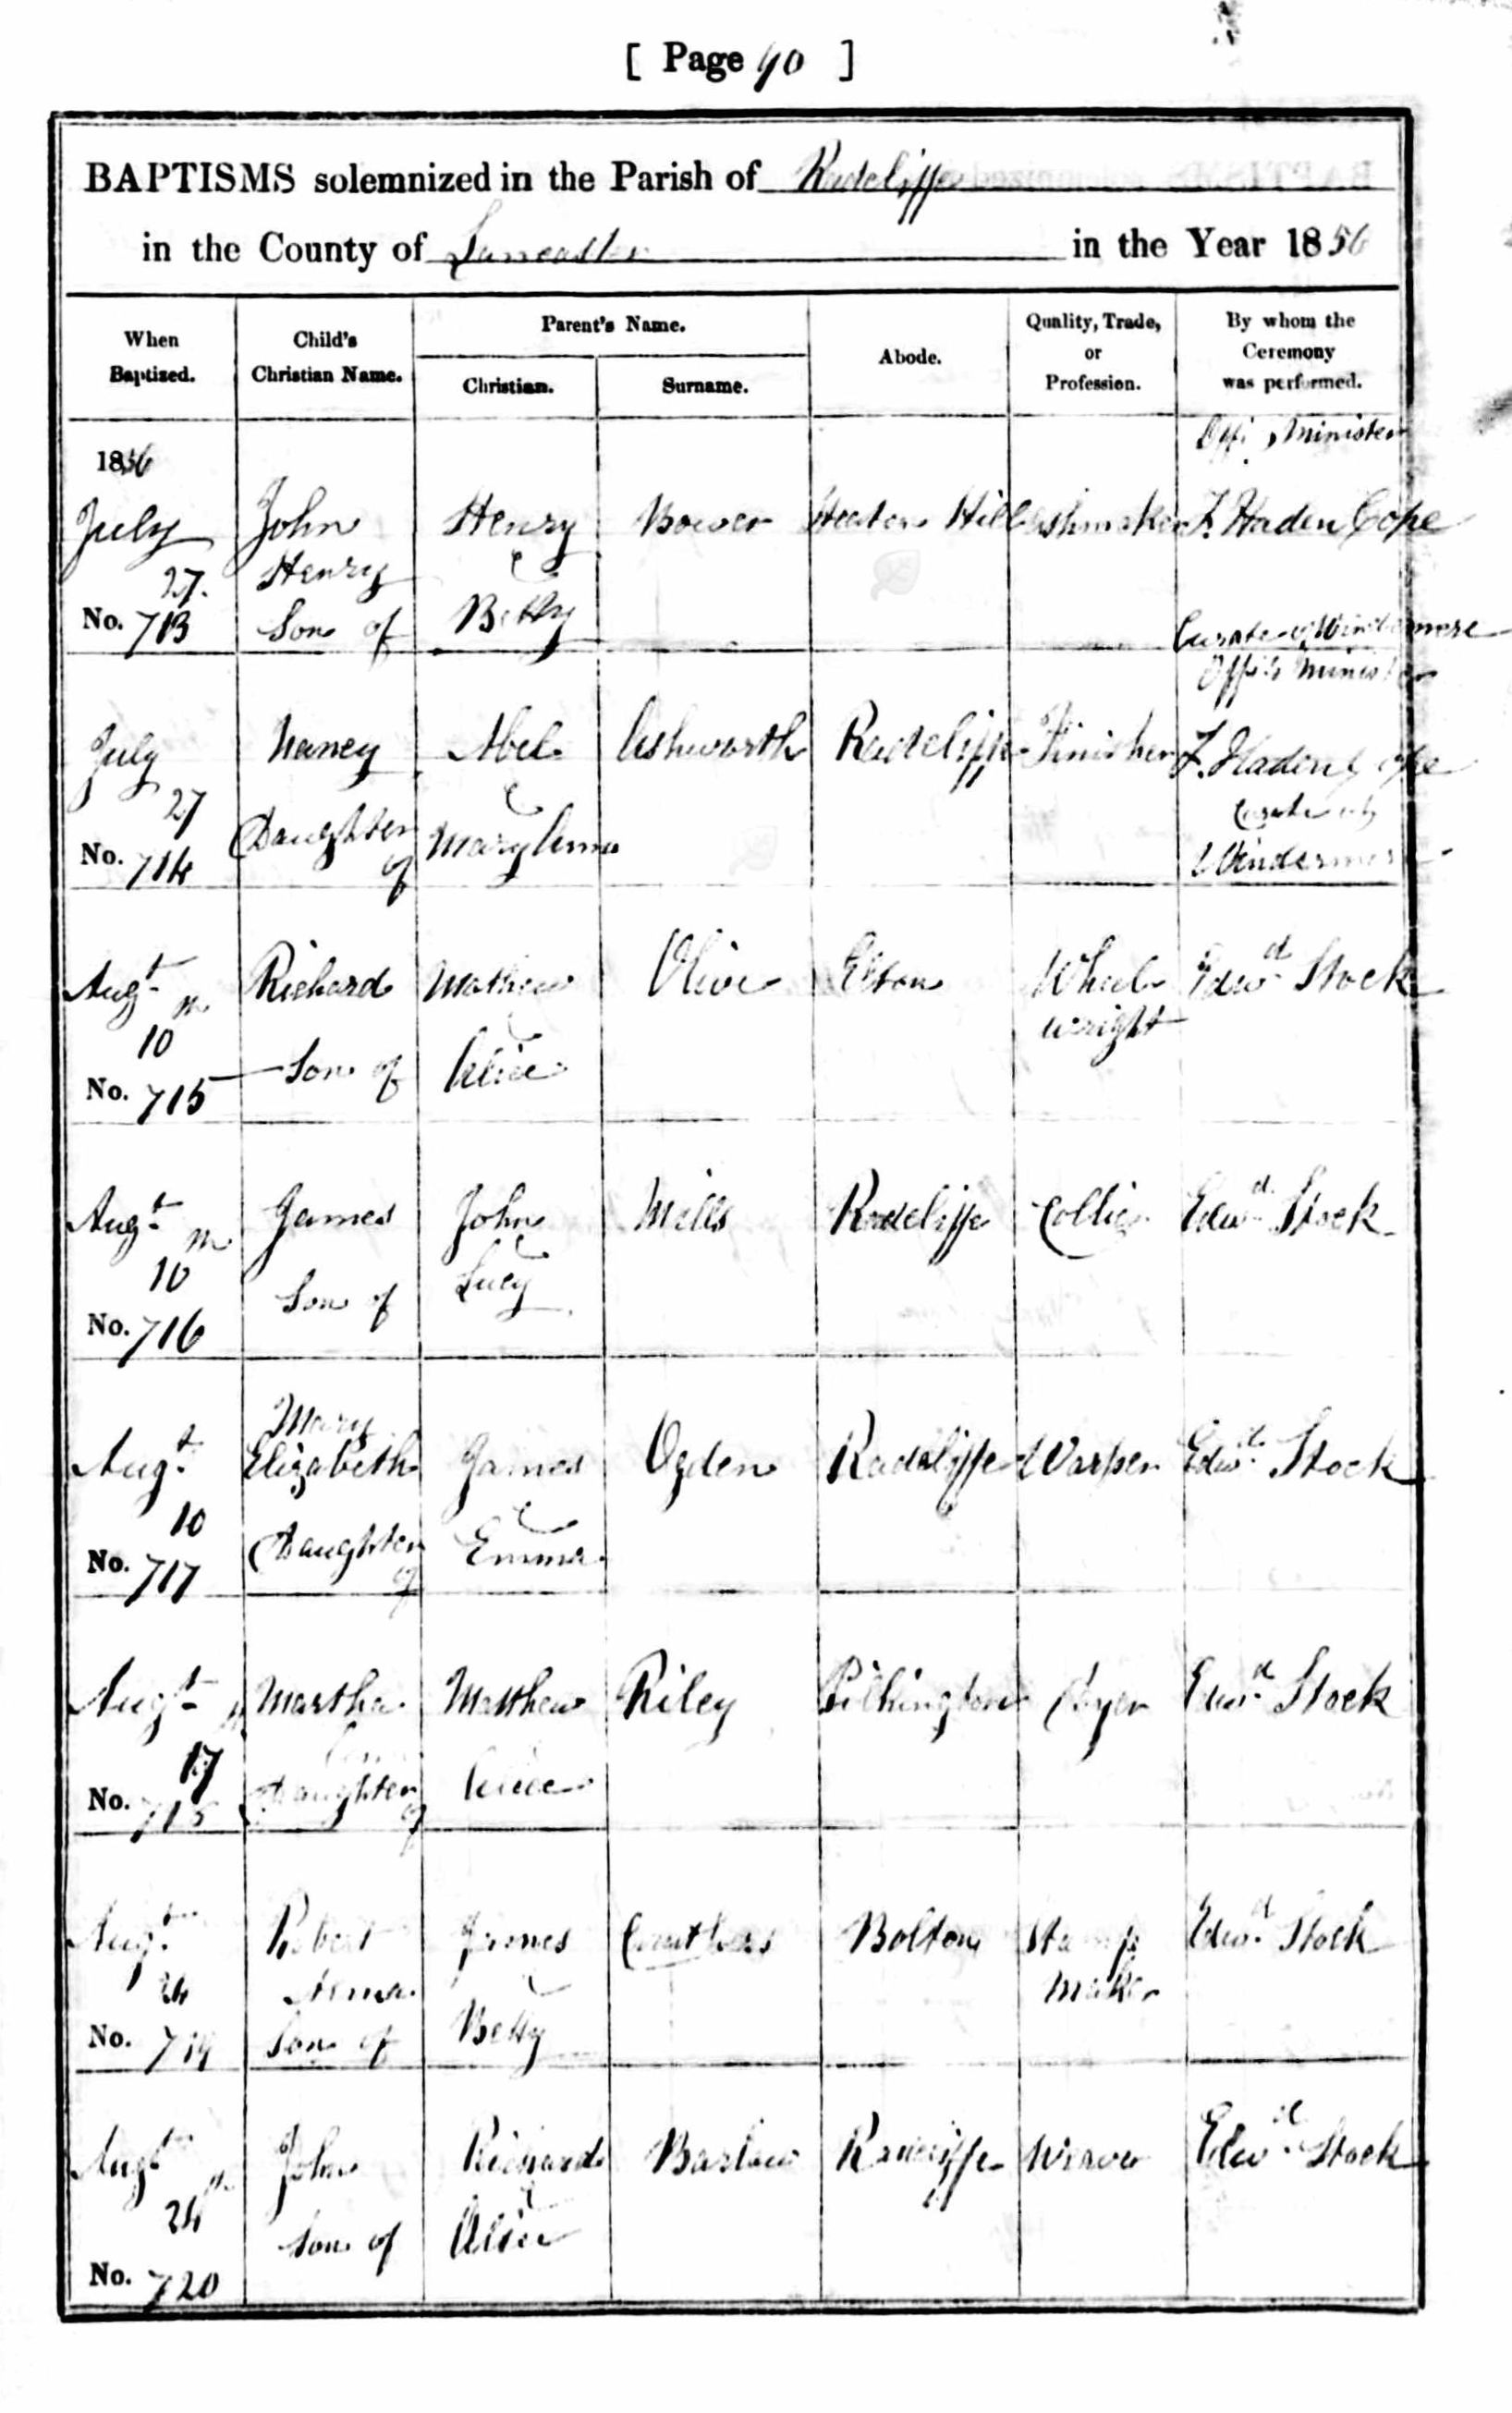 [ Page 90 ]
BAPTISMS solemnized in the Parish of Radcliffe
in the County of Lancaster in the Year 1856
When Baptized.
Child's Christian Name.
Parent's Name.
Christian.
Surname.
Abode.
Quality, Trade, or Profession.
By whom the Ceremony was performed.
1856
July 27.
No. 713
John Henry
Son of
Henry & Betty
Bower
Heaton Hill
F. Haden Cope
Offi Minister
Curate of Windermere
July 27
No. 714
Nancy
Daughter of
Abel & Mary Ann
Ashworth
Radcliffe
Finisher
Offi Minister
F. Haden Cope
Curate of
Windermere
Augt 10
No. 715
Richard
Son of
Mathew & Alice
Olive
Elton
Wheel
wright
Edwd Stock
Augt 10
No. 716
James
Son of
John & Lucy
Mills
Radcliffe
Collier
Edwd Stock
Augt 10
No. 717
Mary
Elizabeth
Daughter of
James & Emma
Ogden
Radcliffe
Warper
Edwd Stock
Augt 17
No. 718
Martha
Daughter of
Matthew & Alice
Riley
Pilkington
Dyer
Edwd Stock
Augt 24
No. 719
Robert
Son of
James & Betty
Bolton
maker
Edwd Stock
Augt 24
No. 720
John
Son of
Richard & Alice
Barlow
Radcliffe
Weaver
Edwd Stock